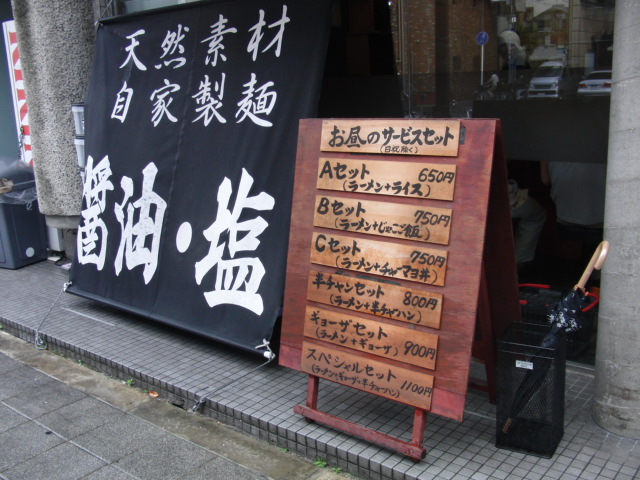 天然素材
自家製麺
醤油・塩
お昼のサービスセット
(日祝除く)
Aセット 650円
(ラーメン+ライス)
Bセット 750円
(ラーメン+じゃこご飯)
Cセット 750円
(ラーメン+チャーマヨ丼)
半チャンセット 800円
(ラーメン+半チャーハン)
ギョーザセット 900円
(ラーメン+ギョーザ)
スペシャルセット 1100円
(ラーメン+ギョーザ+半チャーハン)